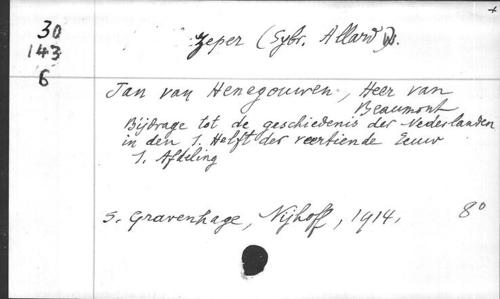 30
143
6
Zeper (Sybr. Allard).
Jan van Henegouwen, Heer van
Beaumont
Bijdrage tot de geschiedenis der Nederlanden
in den 1. Helft der veertiende Eeuw
1. Afdeling
s. Gravenhage, Nijhoff, 1914, 8°